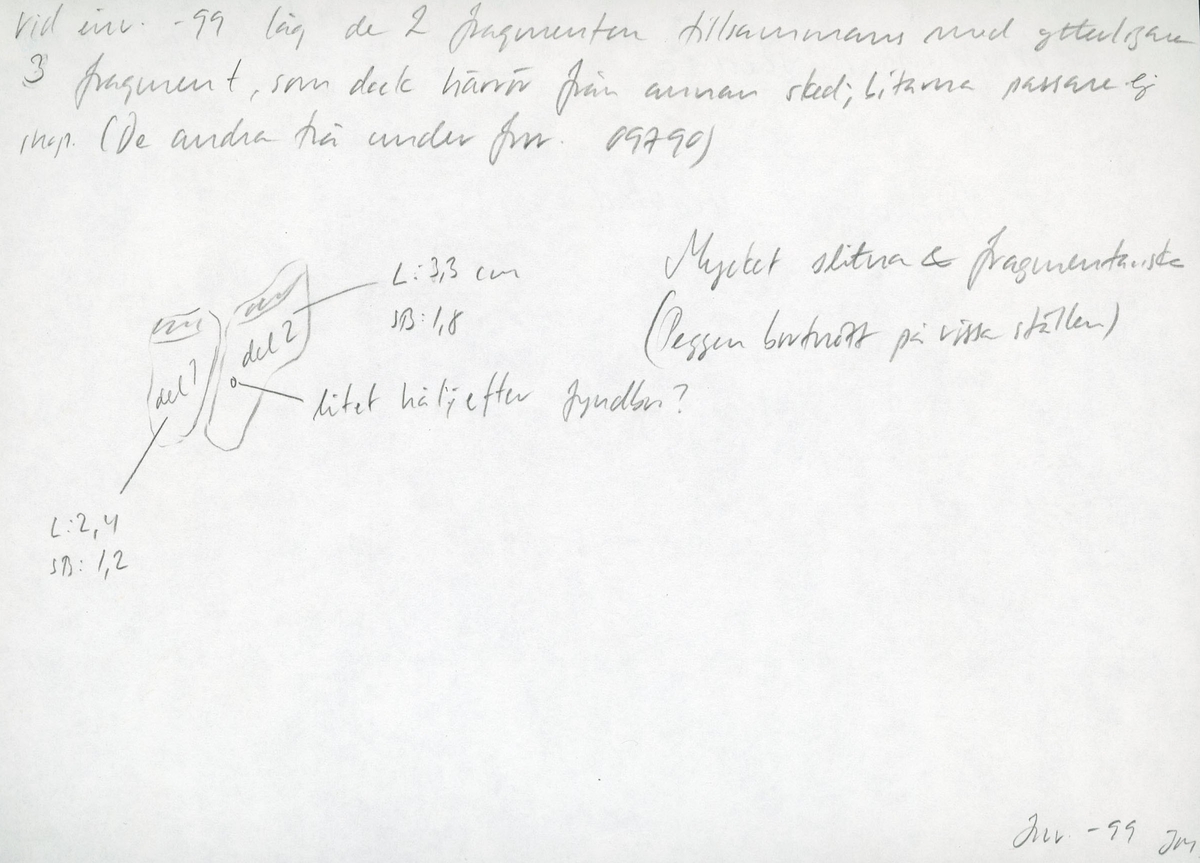 Vid inv. -99 låg de 2 fragmenten tillsammans med ytterligare
3 fragment, som dock härrör från annan sked; bitarna passare ej
ihop. (De andra två under Inv. 09790)
Mycket slitna & fragmentariska
(Peggen bortnött på vissa ställen)
L: 3,3 cm
SB: 1,8
del 2
del 1
litet hål; efter
L: 2,4
SB: 1,2
Inv. -99